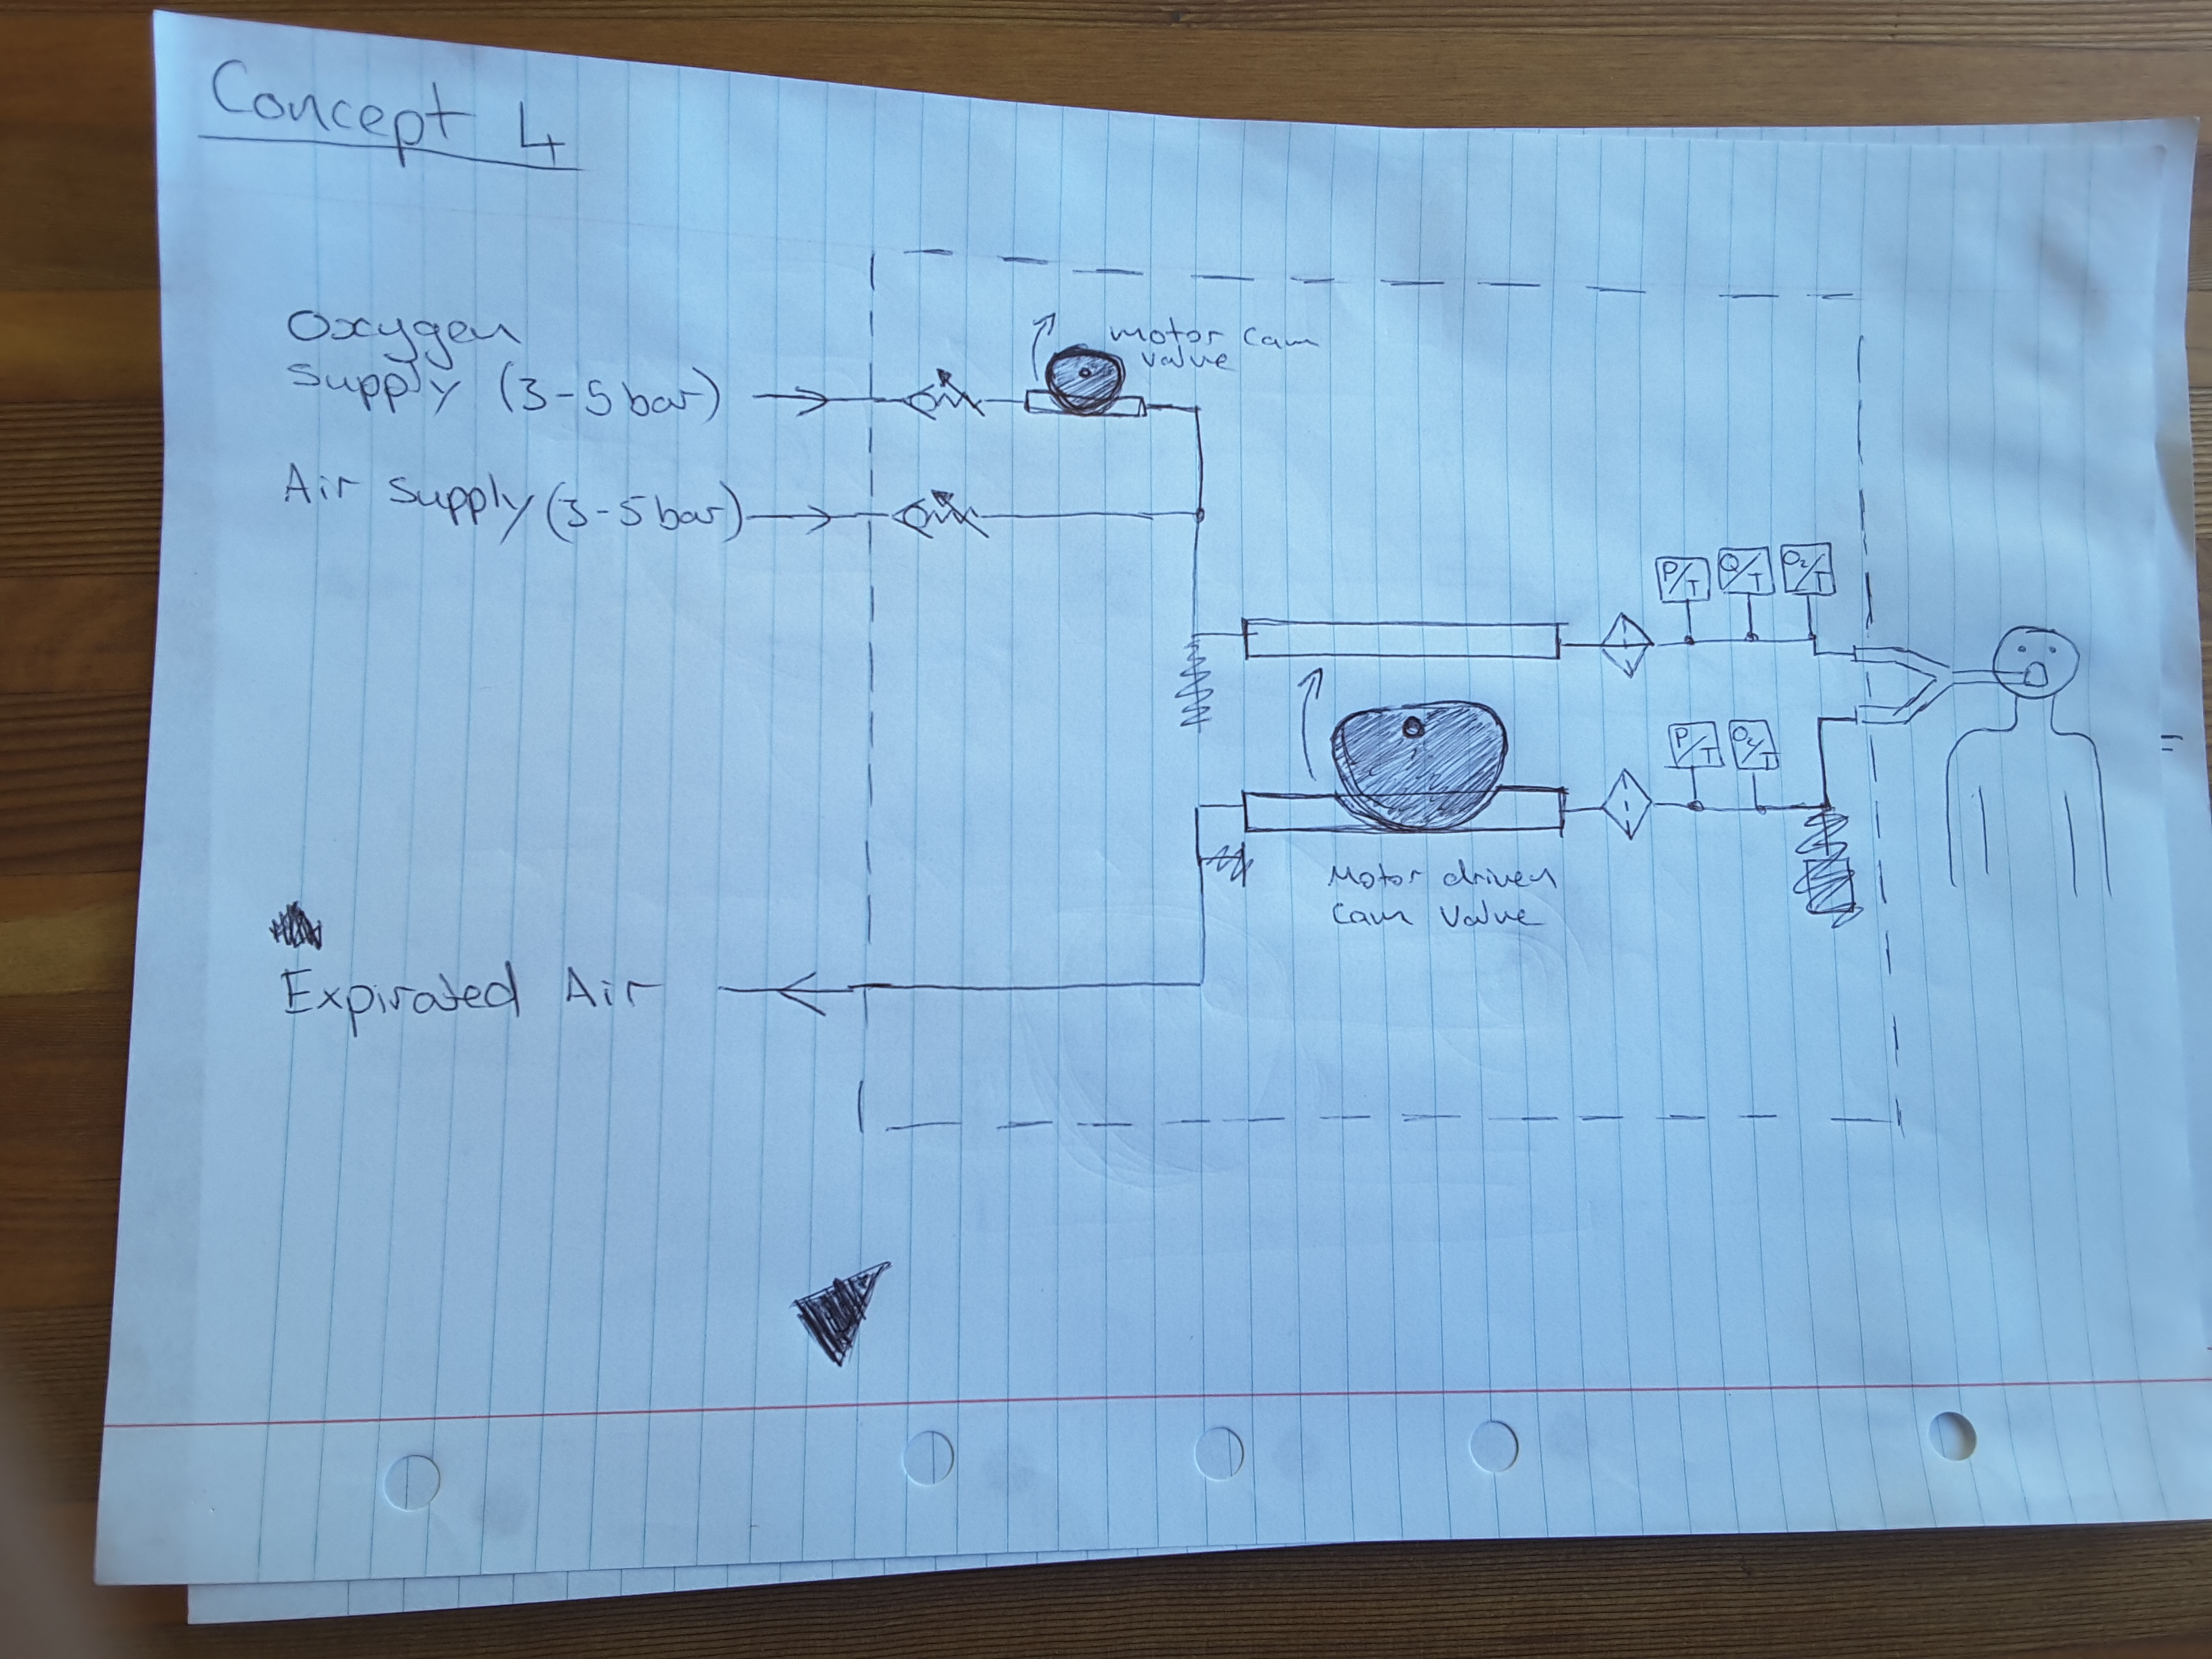 Concept 4
Oxygen
Supply (3-5 bar)
motor cam
valve
Air Supply (3-5 bar)
P/T Q/T O₂/T
P/T O₂/T
Motor driven
cam valve
Expirated Air